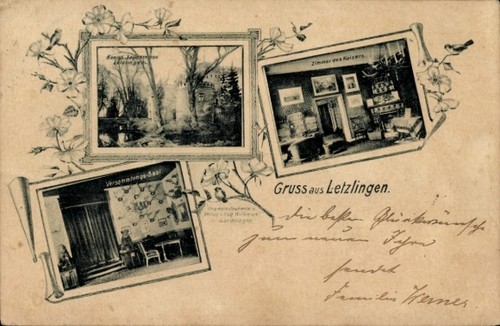 Königl. Jagdschloss
Letzlingen.
Zimmer des Kaisers.
Versammlungs-Saal
Gruss aus Letzlingen.
die besten Glückwünsche
zum neuen Jahre
sendet
Familie Werner